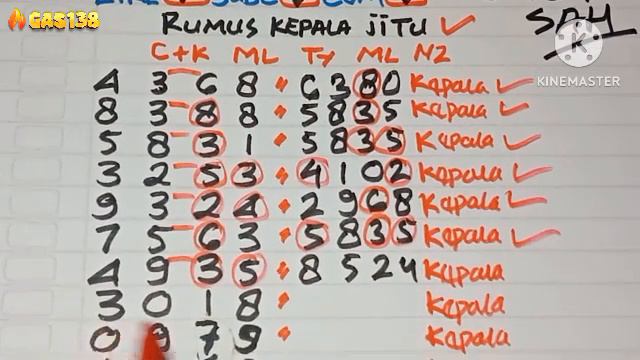 GAS138
RUMUS KEPALA JITU ✓
SDH
K
KINEMASTER
C+K ML TY ML NZ
4 3 6 8 • 6 3 8 0 Kepala ✓
8 3 8 8 • 5 8 3 5 Kepala ✓
5 8 3 1 • 5 8 3 5 Kepala ✓
3 2 5 3 • 4 1 0 2 Kepala ✓
9 3 2 4 • 2 9 6 8 Kepala ✓
7 5 6 3 • 5 8 3 5 Kepala ✓
4 9 3 5 • 8 5 2 4 Kepala
3 0 1 8 • Kepala
0 9 7 9 • Kepala